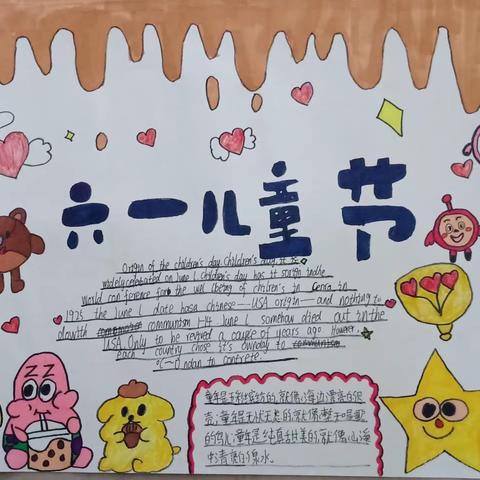 六一儿童节
origin of the children's day. children's day, it is
widely celebrated on June 1 children's day has it origin in the
world conference for the well being of children's in Geneva in
1925 the June 1 date has a chinese—USA origin—and nothing to
dowith communism 1-4 June 1 somehow died out in the
USA Only to be revived a couple of years ago However
each country chose it's own day to
ZZ
童年是五彩缤纷的,就像海边漂亮的贝
壳;童年是无忧无虑的,就像
的鸟儿;童年是纯真甜美的,就像山涧
中清亮的泉水。